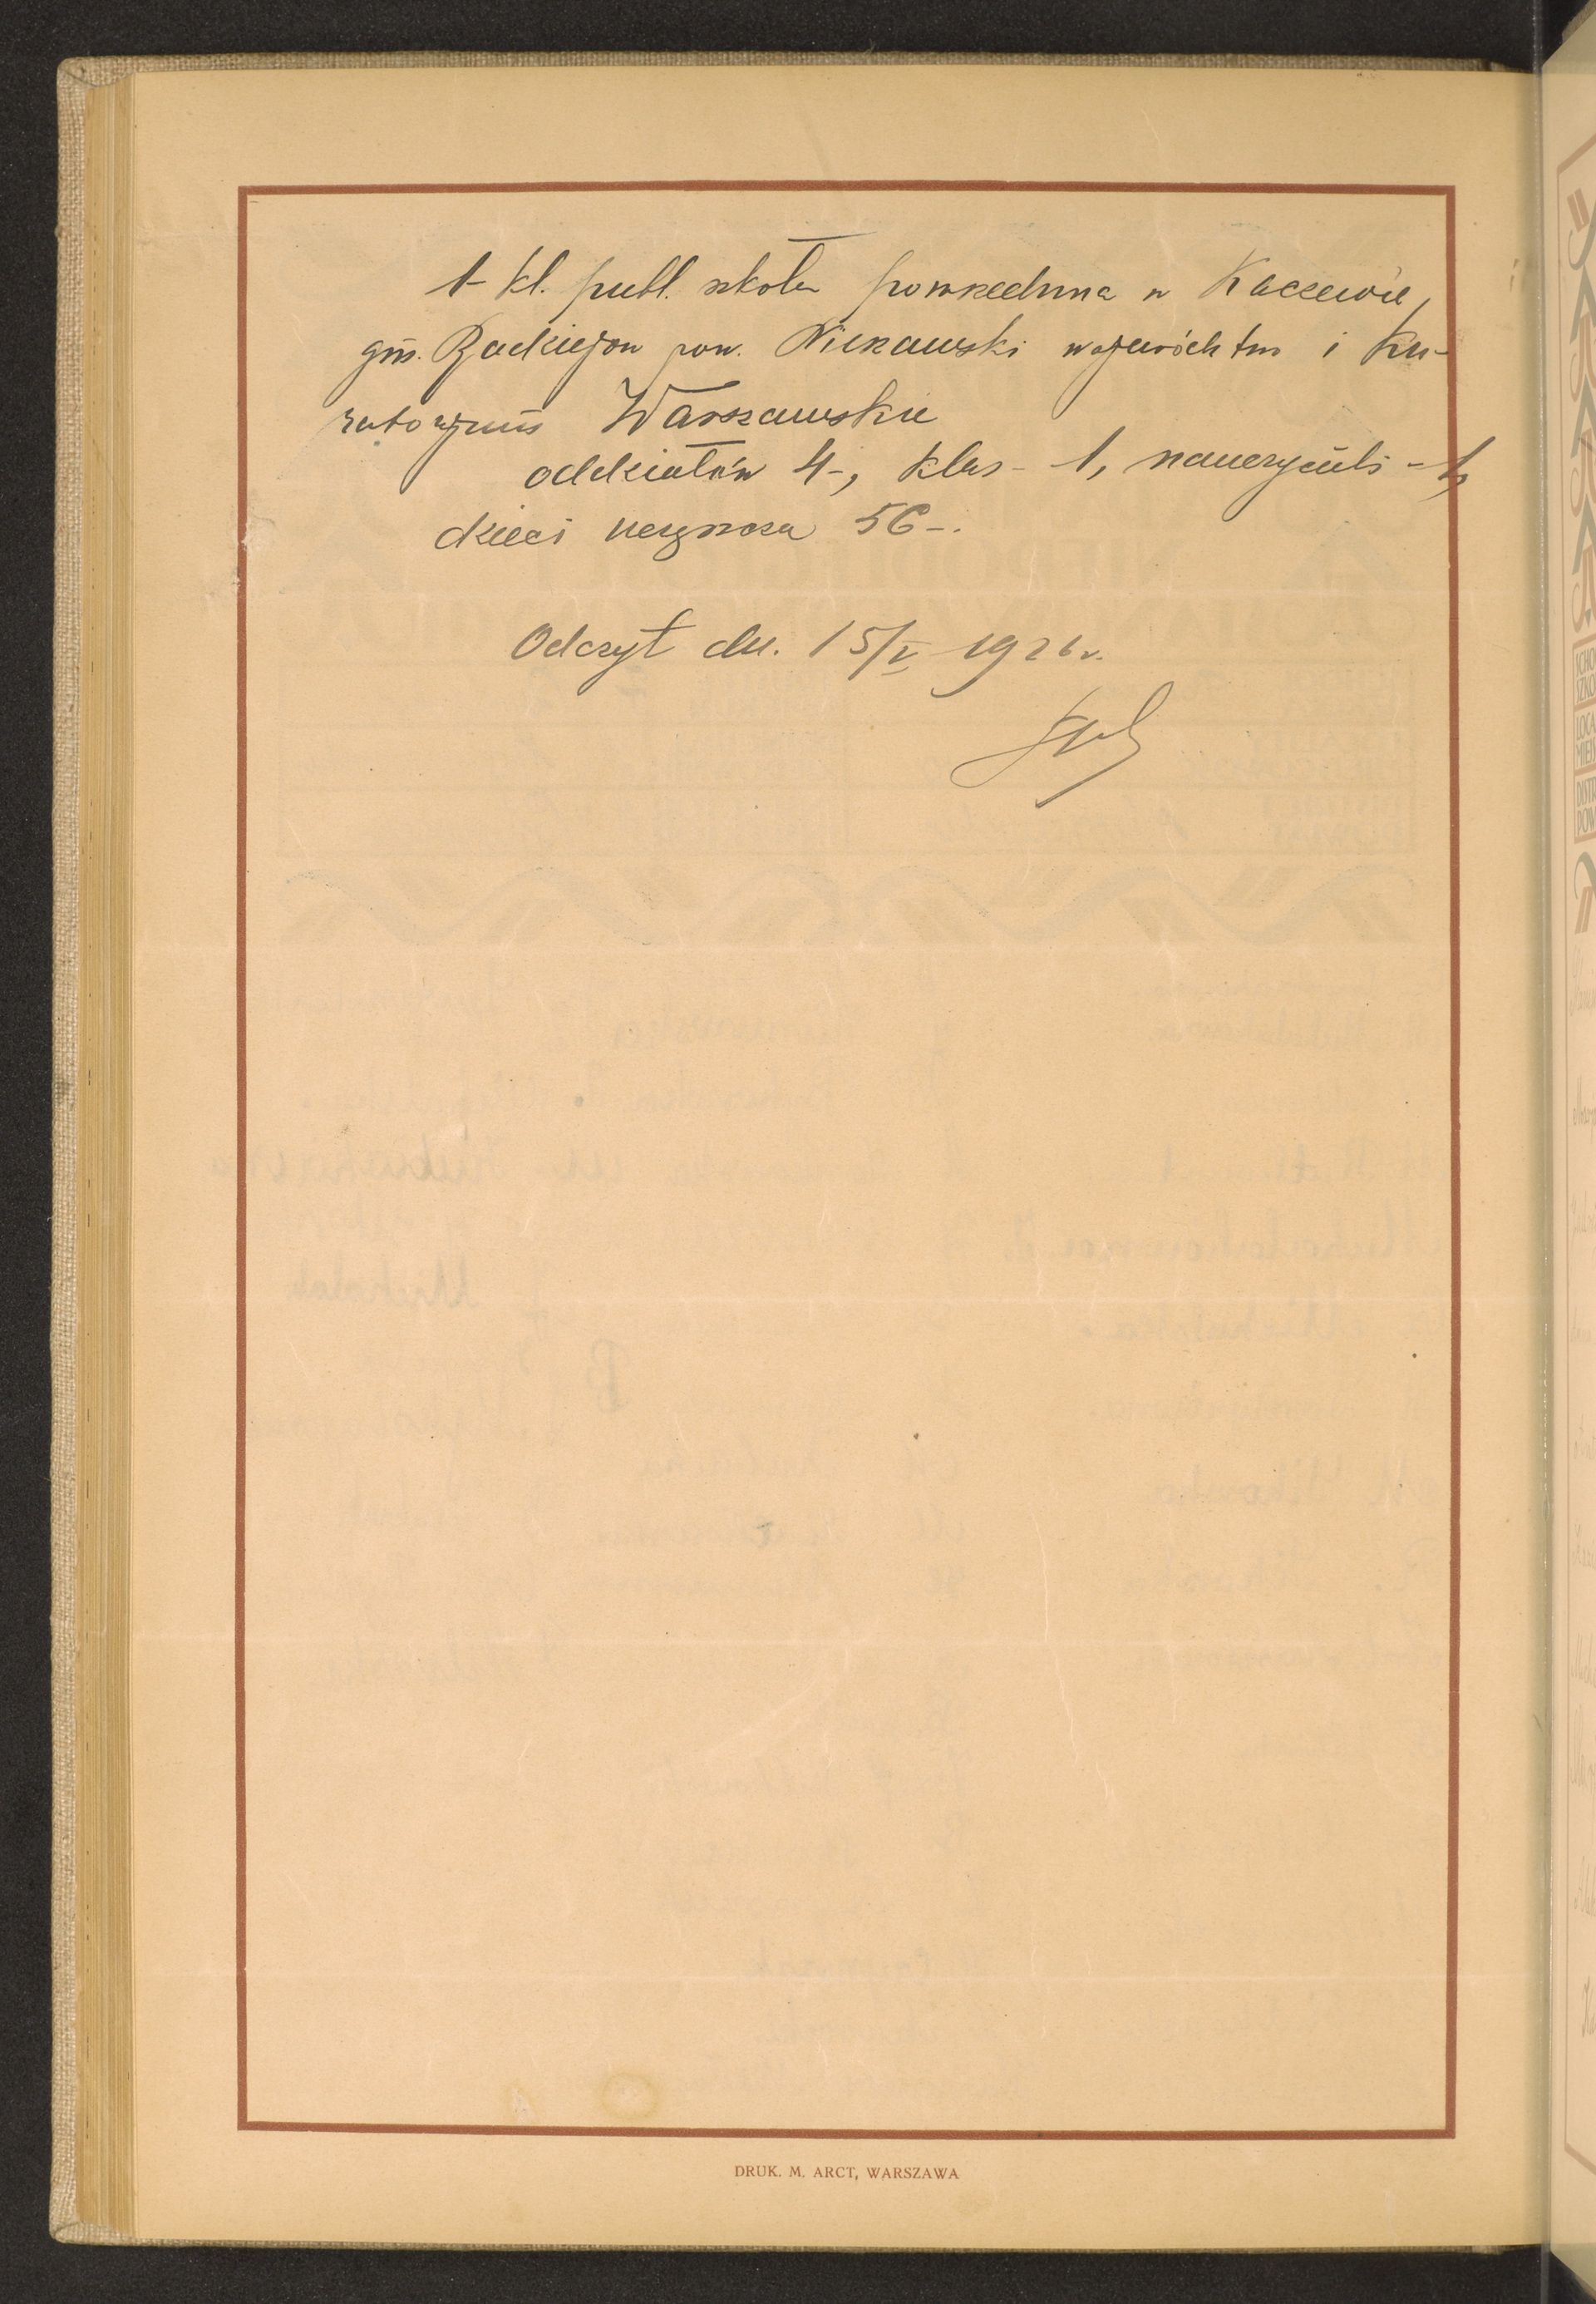 1 kl. publ. szkoła powszechna w Kaczewie,
gm. Radziejów pow. Nieszawski województwo i Ku-
ratorjum Warszawskie
oddziałów 4-, klas - 1, nauczycieli - 1,
dzieci uczęszcza 56-.
Odczyt dn. 15/V 1926 r.
DRUK. M. ARCT, WARSZAWA